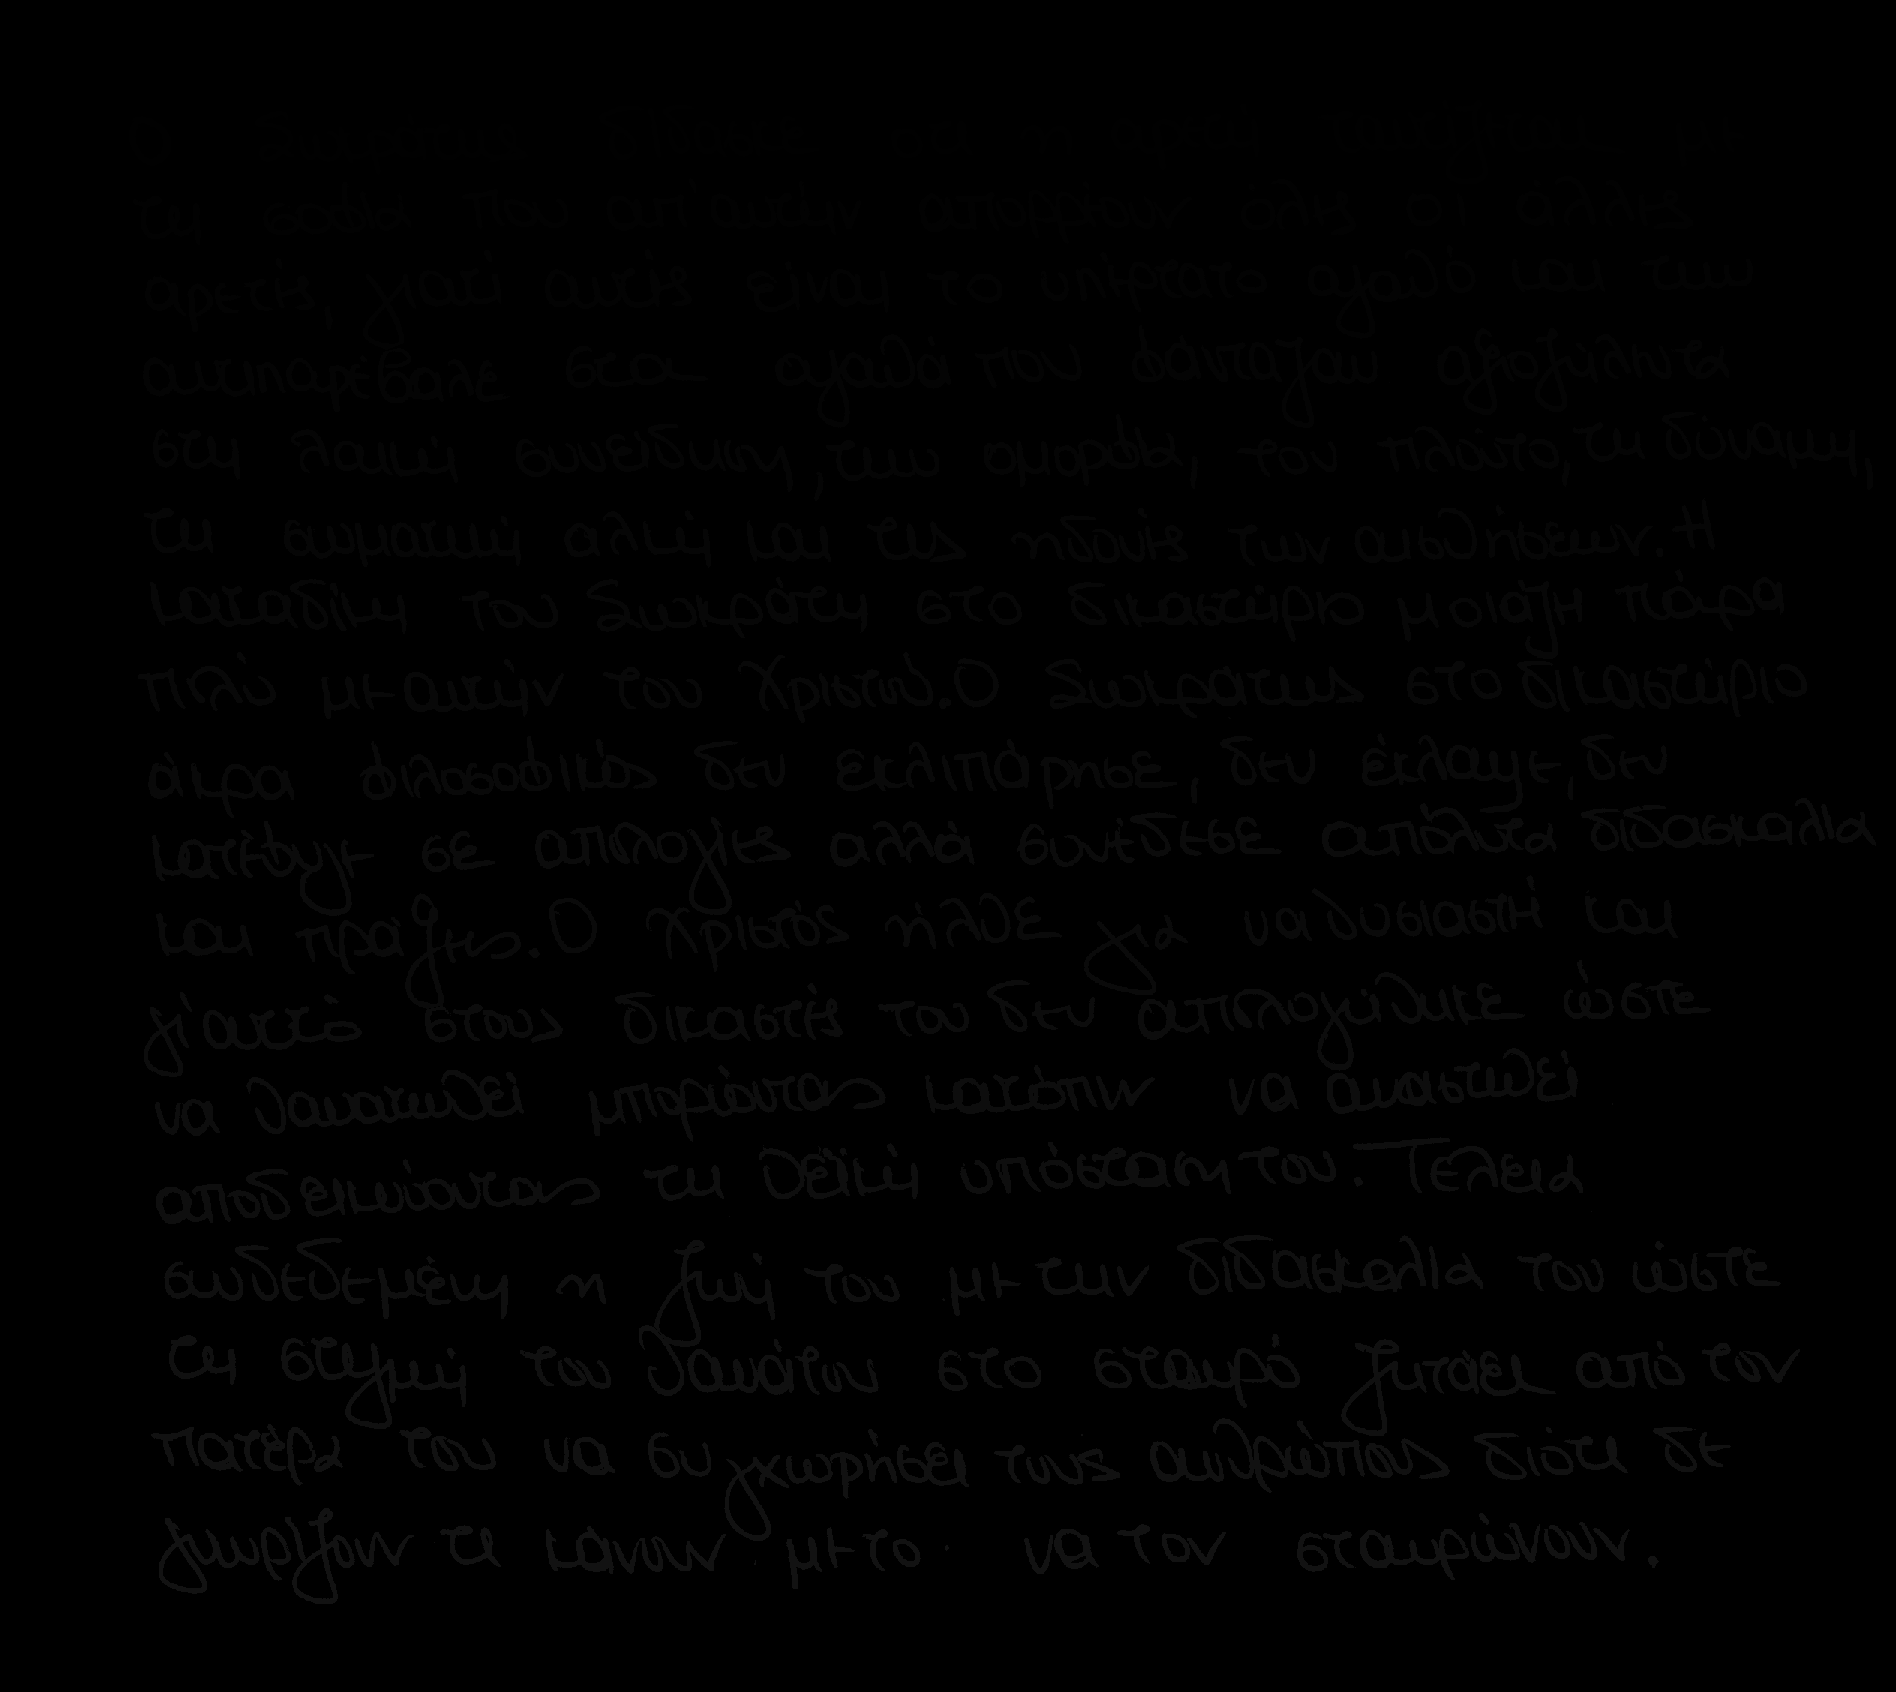 Ο Σωκράτης έλεγε ότι η αρετή ταυτίζεται με
τη σοφία που απ' αυτήν απορρέουν όλες οι άλλες
αρετές, γιατί αυτές είναι το υπέρτατο αγαθό και την
αντιπαρέβαλε στα αγαθά που φάνταζαν αξιοζήλευτα
στη λαϊκή συνείδηση, την ομορφιά, τον πλούτο, τη δύναμη,
τη σωματική αλκή και τις ηδονές των αισθήσεων. Η
καταδίκη του Σωκράτη στο δικαστήριο μοιάζη πάρα
πολύ με αυτήν του Χριστού. Ο Σωκράτης στο δικαστήριο
άκρα φιλοσοφικός δεν εκλιπάρησε, δεν έκλαψε, δεν
κατέφυγε σε απολογίες αλλά συνέδεσε απόλυτα διδασκαλία
και πράξης. Ο Χριστός ήλθε για να θυσιαστή και
γι' αυτό στους δικαστές του δεν απολογήθηκε ώστε
να θανατωθεί μπορώντας κατόπιν να αναστηθεί
αποδεικνύοντας τη θεϊκή υπόσταση του. Τέλεια
συνδεδεμένη η ζωή του με την διδασκαλία του ώστε
τη στιγμή του θανάτου στο σταυρό ζητάει από τον
πατέρα του να συγχωρήσει τους ανθρώπους διότι δε
γνωρίζουν τι κάνουν με το να τον σταυρώνουν.